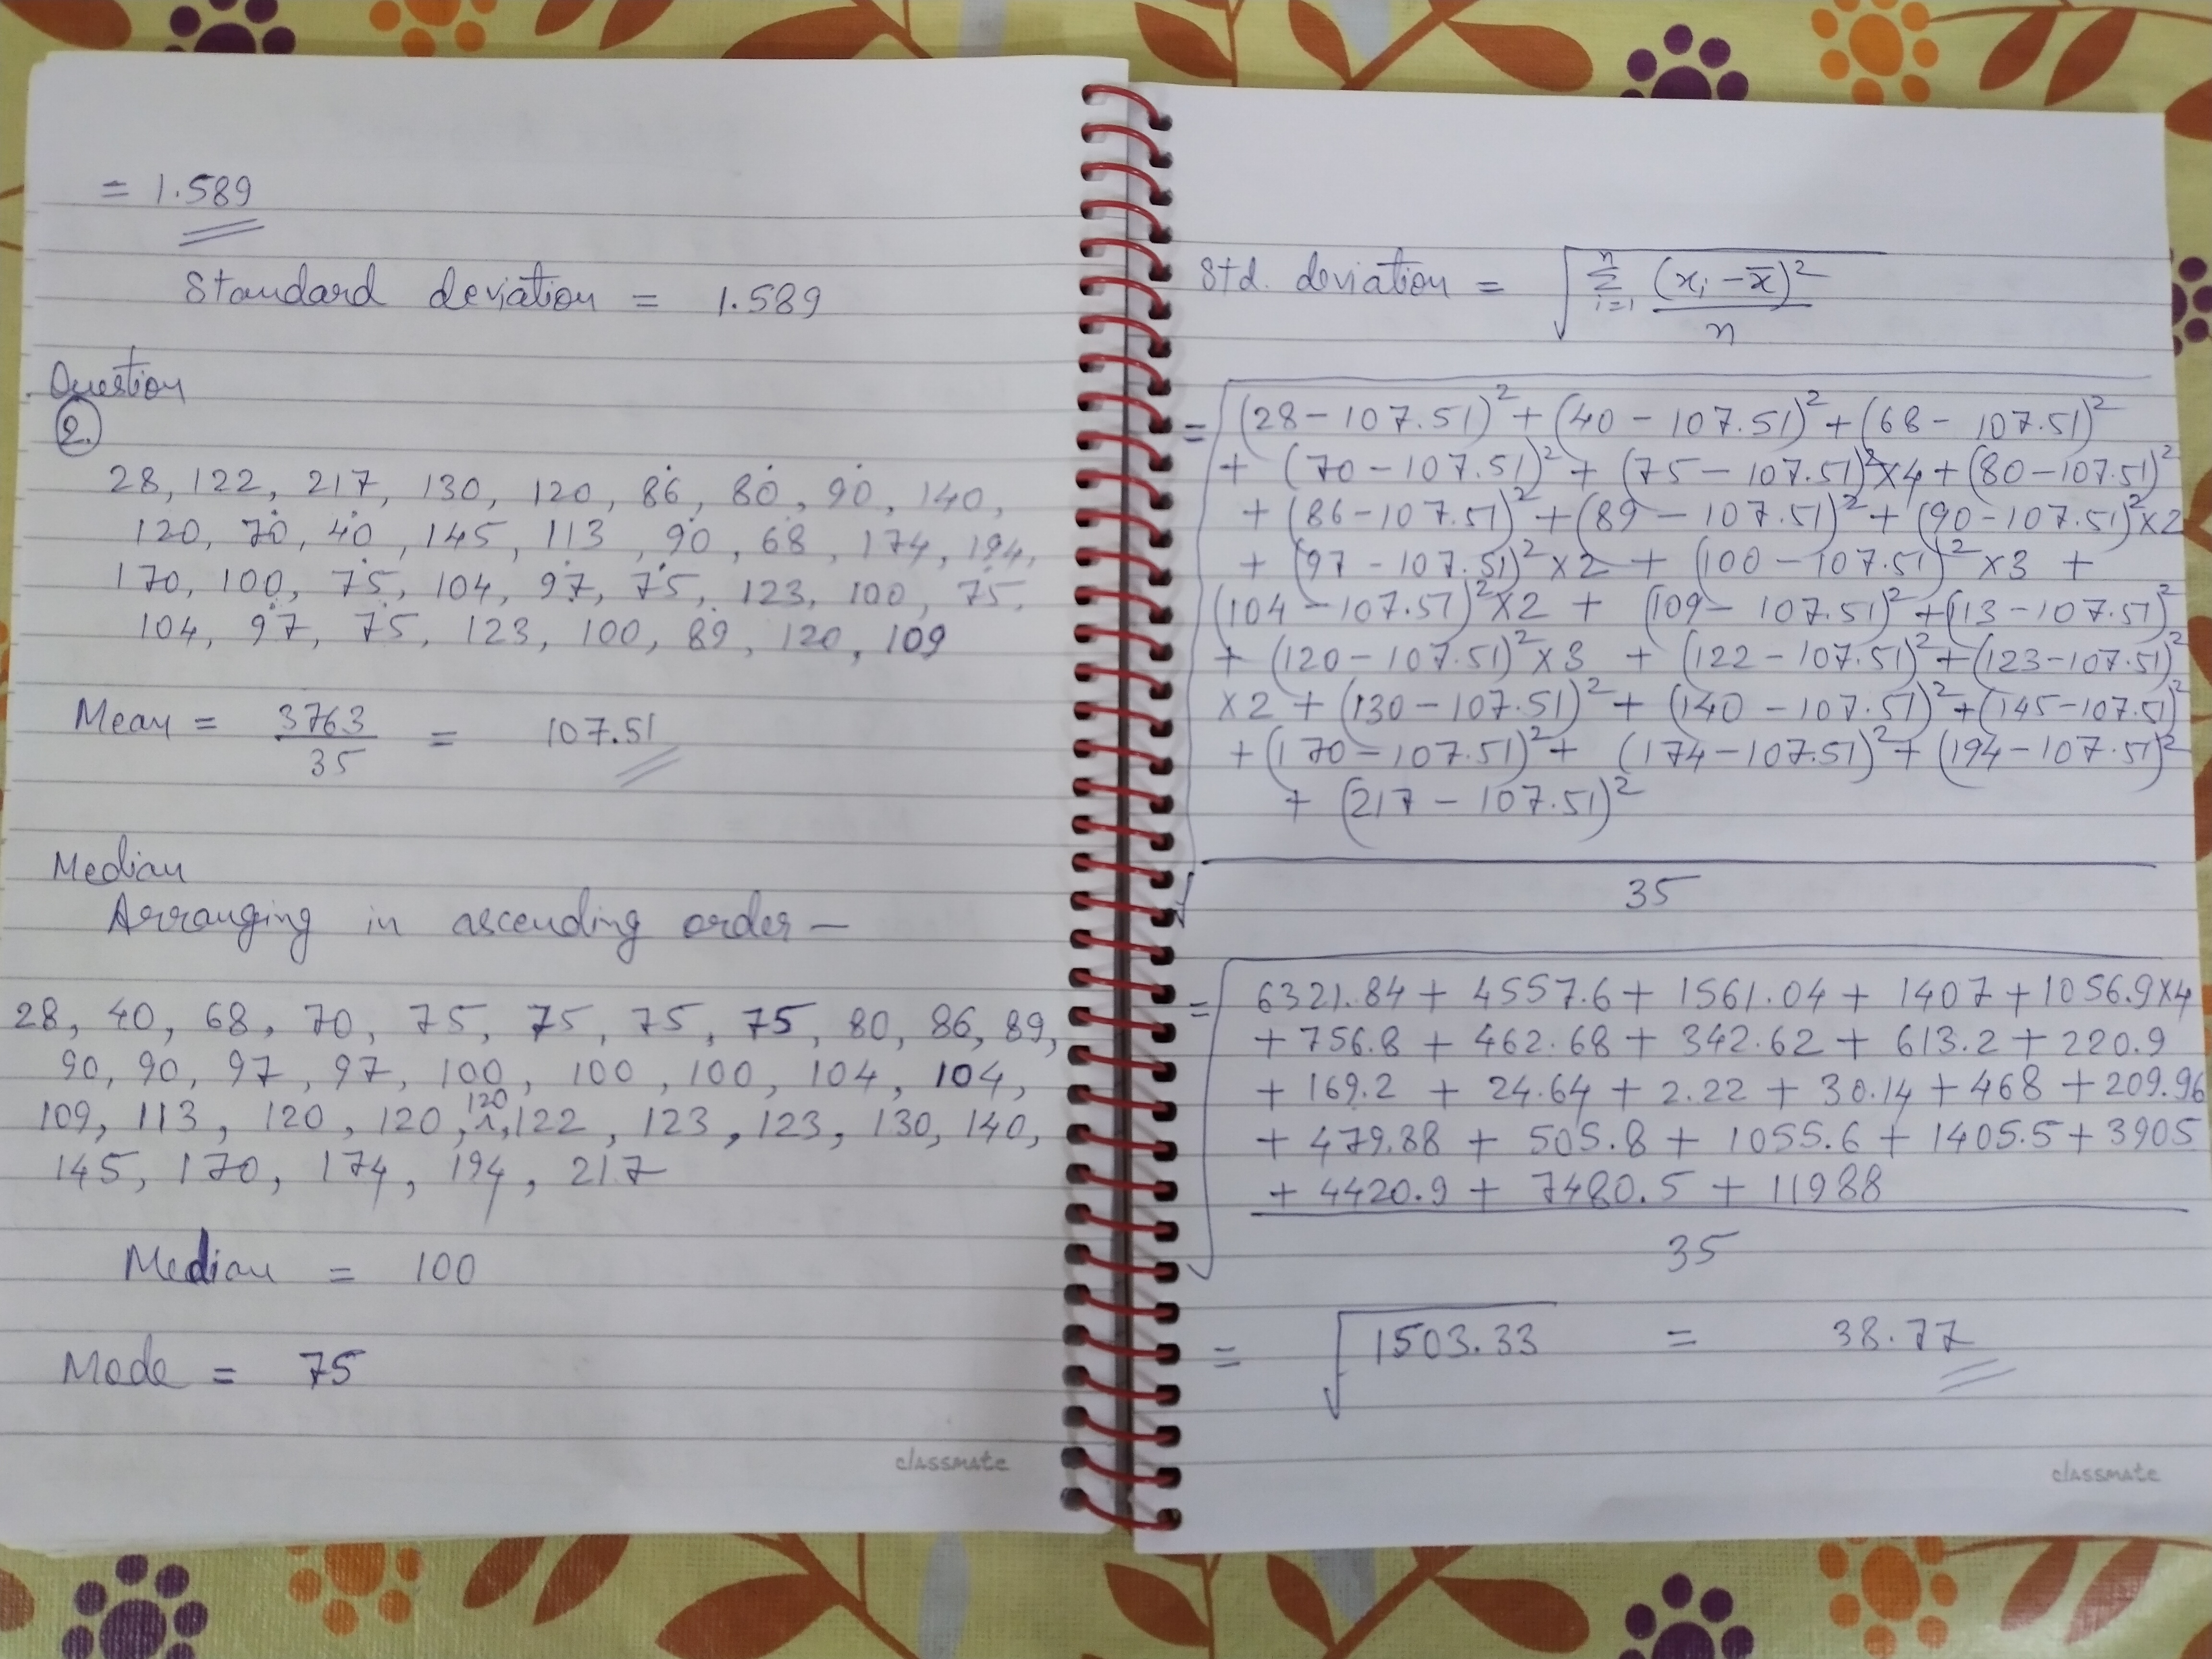 = 1.589
Standard deviation = 1.589
Question
2. 28, 122, 217, 130, 120, 86, 80, 90, 140,
120, 70, 40, 145, 113, 90, 68, 174, 194,
170, 100, 75, 104, 97, 75, 123, 100, 75,
104, 97, 75, 123, 100, 89, 120, 109
Mean = 3763/35 = 107.51
Median
Arranging in ascending order –
28, 40, 68, 70, 75, 75, 75, 75, 80, 86, 89,
90, 90, 97, 97, 100, 100, 100, 104, 104,
109, 113, 120, 120, 120, 122, 123, 123, 130, 140,
145, 170, 174, 194, 217
Median = 100
Mode = 75
classmate
Std. deviation = √ n Σ i=1 (xi – x̄)² / n
= √ (28 – 107.51)² + (40 – 107.51)² + (68 – 107.51)²
+ (70 – 107.51)² + (75 – 107.51)² x4 + (80 – 107.51)²
+ (86 – 107.51)² + (89 – 107.51)² + (90 – 107.51)² x2
+ (97 – 107.51)² x2 + (100 – 107.51)² x3 +
(104 – 107.51)² x2 + (109 – 107.51)² + (113 – 107.51)²
+ (120 – 107.51)² x3 + (122 – 107.51)² + (123 – 107.51)²
x2 + (130 – 107.51)² + (140 – 107.51)² + (145 – 107.51)²
+ (170 – 107.51)² + (174 – 107.51)² + (194 – 107.51)²
+ (217 – 107.51)²
35
= √ 6321.84 + 4557.6 + 1561.04 + 1407 + 1056.9x4
+ 756.8 + 462.68 + 342.62 + 613.2 + 220.9
+ 169.2 + 24.64 + 2.22 + 30.14 + 468 + 209.96
+ 479.88 + 505.8 + 1055.6 + 1405.5 + 3905
+ 4420.9 + 7480.5 + 11988
35
= √1503.33 = 38.77
classmate